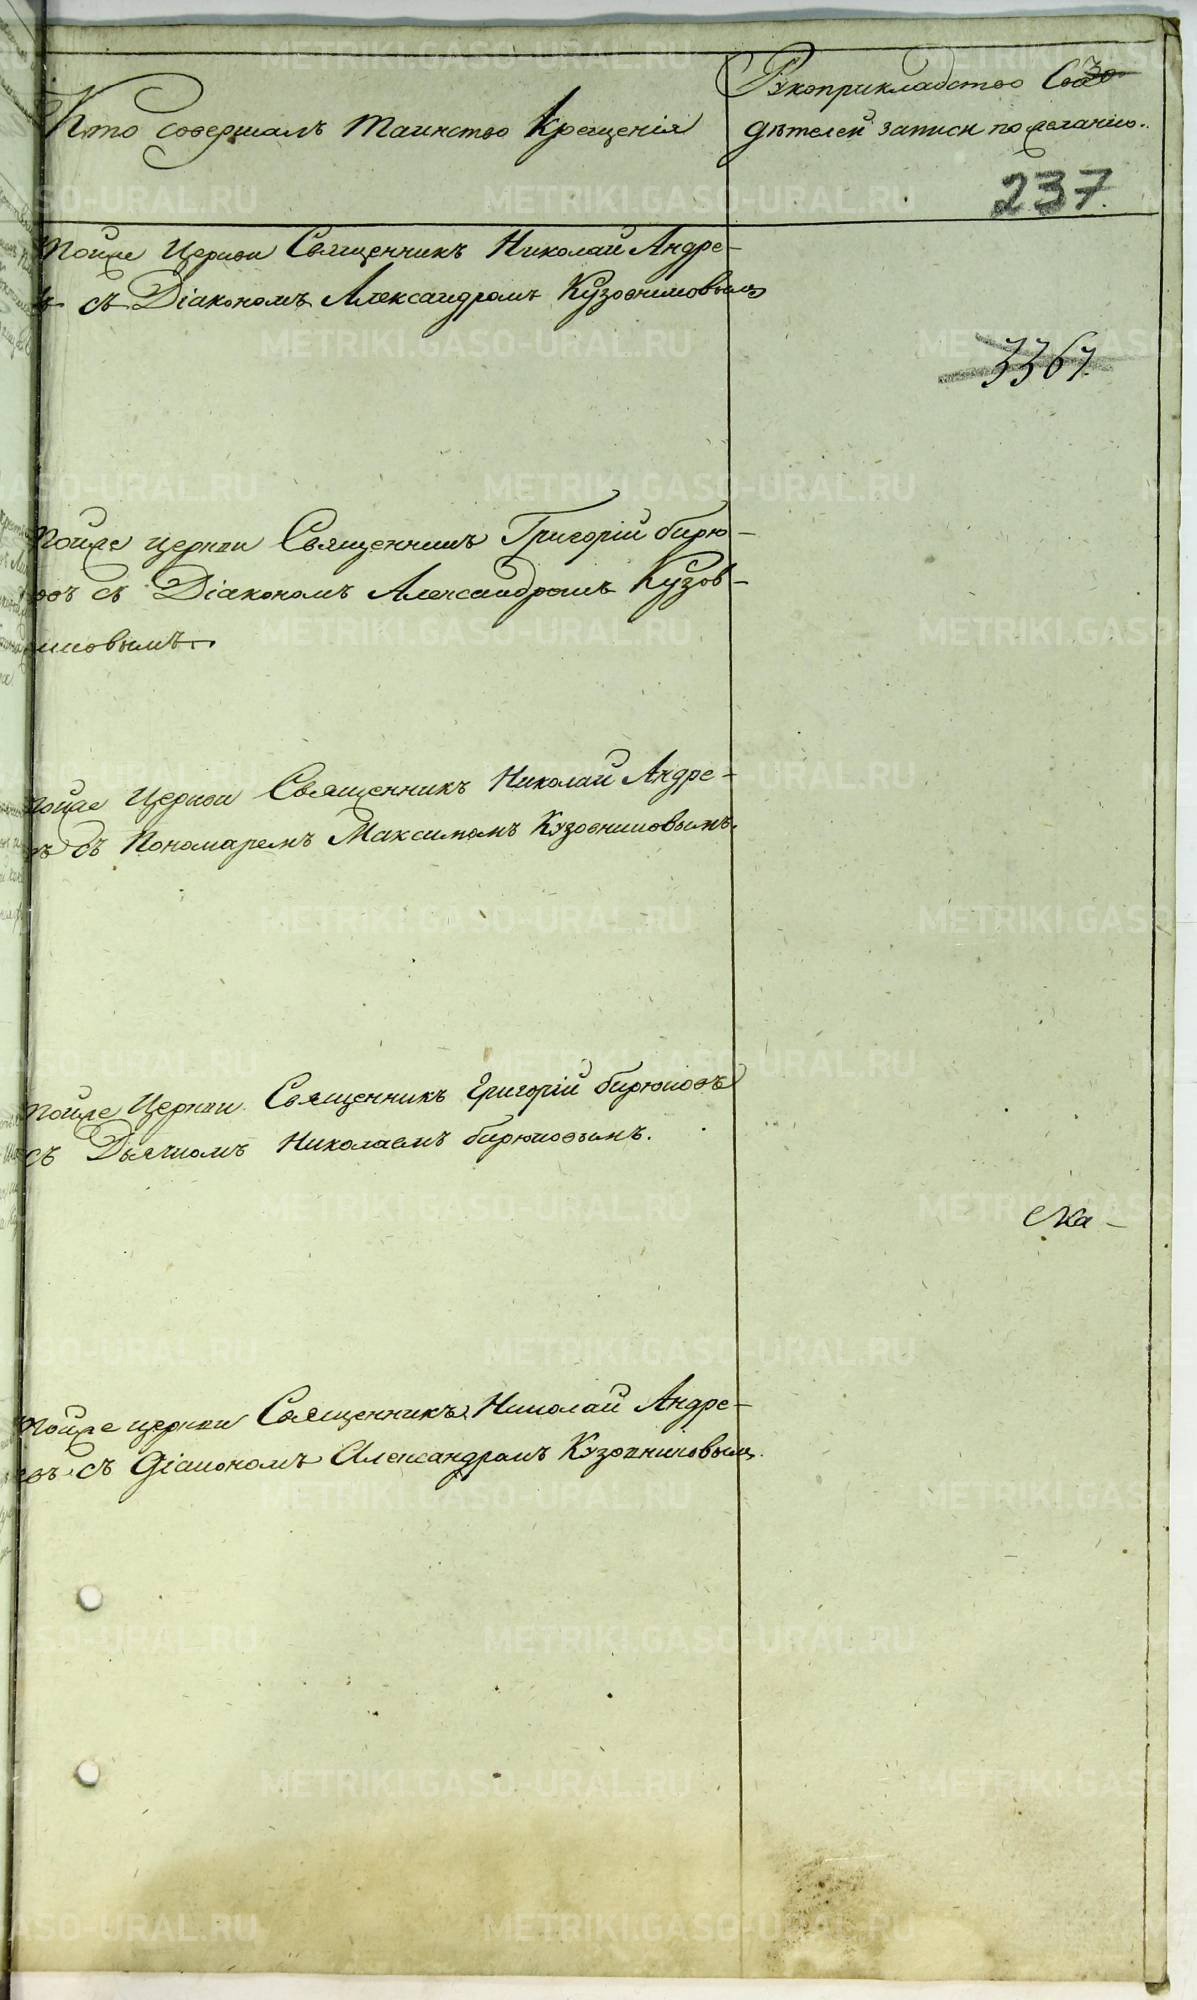 Кто совершалъ таинство Крещенія
Рукоприкладство Сви
дѣтелей записи по желанію.
237.
Тойже Церкви Священникъ Николай Андре-
въ съ Діакономъ Александромъ Кузовниковымъ
3367.
Тойже церкви Священникъ Григорій Бирю-
ковъ съ Діакономъ Александромъ Кузов-
никовымъ.
Тойже Церкви Священникъ Николай Андре-
въ съ Пономаремъ Максимомъ Кузовниковымъ.
Тойже Церкви Священникъ Григорій Бирюковъ
съ Дьячкомъ Николаемъ Бирюковымъ.
Ка-
Тойже церкви Священникъ Николай Андре-
евъ съ Діакономъ Александромъ Кузовниковымъ.
METRIKI.GASO-URAL.RU